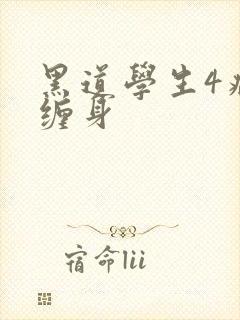 黑道學生4
缠身
宿命lii